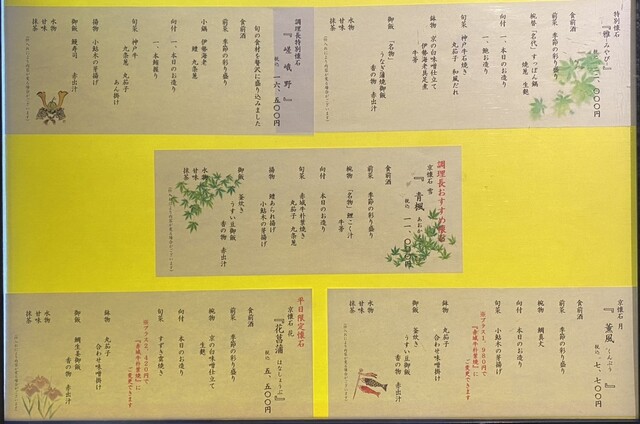 特別懐石
『雅 - みやび』
食前酒
前菜 季節の彩り盛り
椀替 「名代」すっぽん鍋
焼葱 生麩
向付 一、本日のお造り
一、鮑お造り
旬菜 神戸牛石焼き
丸茄子 和風だれ
鉢物 京の白味噌仕立て
伊勢海老具足煮
牛蒡
御飯 「名物」
うなぎ蒲焼御飯
香の物 赤出汁
水物
甘味
抹茶
調理長特別懐石
『嵯峨野』
税込 一六、五〇〇円
旬の食材を贅沢に盛り込みました
食前酒
前菜 季節の彩り盛り
小鍋 伊勢海老
鱧 九条葱
向付 一、本日のお造り
一、本鮪握り
旬菜 神戸牛
九条葱 丸茄子
あん掛け
揚物 小鮎木の芽揚げ
御飯 鰻寿司 赤出汁
水物
甘味
抹茶
調理長おすすめ懐石
京懐石 雪
『青楓』
税込 一一、〇〇〇円
食前酒
前菜 季節の彩り盛り
椀物 「名物」鯉こく汁
牛蒡
向付 本日のお造り
旬菜 赤城牛朴葉焼き
丸茄子 九条葱
揚物 鱧あられ揚げ
小鮎木の芽揚げ
御飯 釜炊き
うすい豆御飯
香の物 赤出汁
水物
甘味
抹茶
京懐石 月
『薫風』 くんぷう
税込 七、七〇〇円
食前酒
前菜 季節の彩り盛り
椀物 鯛真丈
向付 本日のお造り
旬菜 小鮎木の芽揚げ
※プラス1,980円で
『赤城牛朴葉焼』に
ご変更できます
鉢物 丸茄子
合わせ味噌掛け
御飯 釜炊き
うすい豆御飯
香の物 赤出汁
水物
甘味
抹茶
平日限定懐石
京懐石 花
『花菖蒲』 はなしょうぶ
税込 五、五〇〇円
食前酒
前菜 季節の彩り盛り
椀物 京の白味噌仕立て
生麩
向付 本日のお造り
旬菜 すずき雲焼き
※プラス2,420円で
『赤城牛朴葉焼』に
ご変更できます
鉢物 丸茄子
合わせ味噌掛け
御飯 鯛生姜御飯
香の物 赤出汁
水物
甘味
抹茶